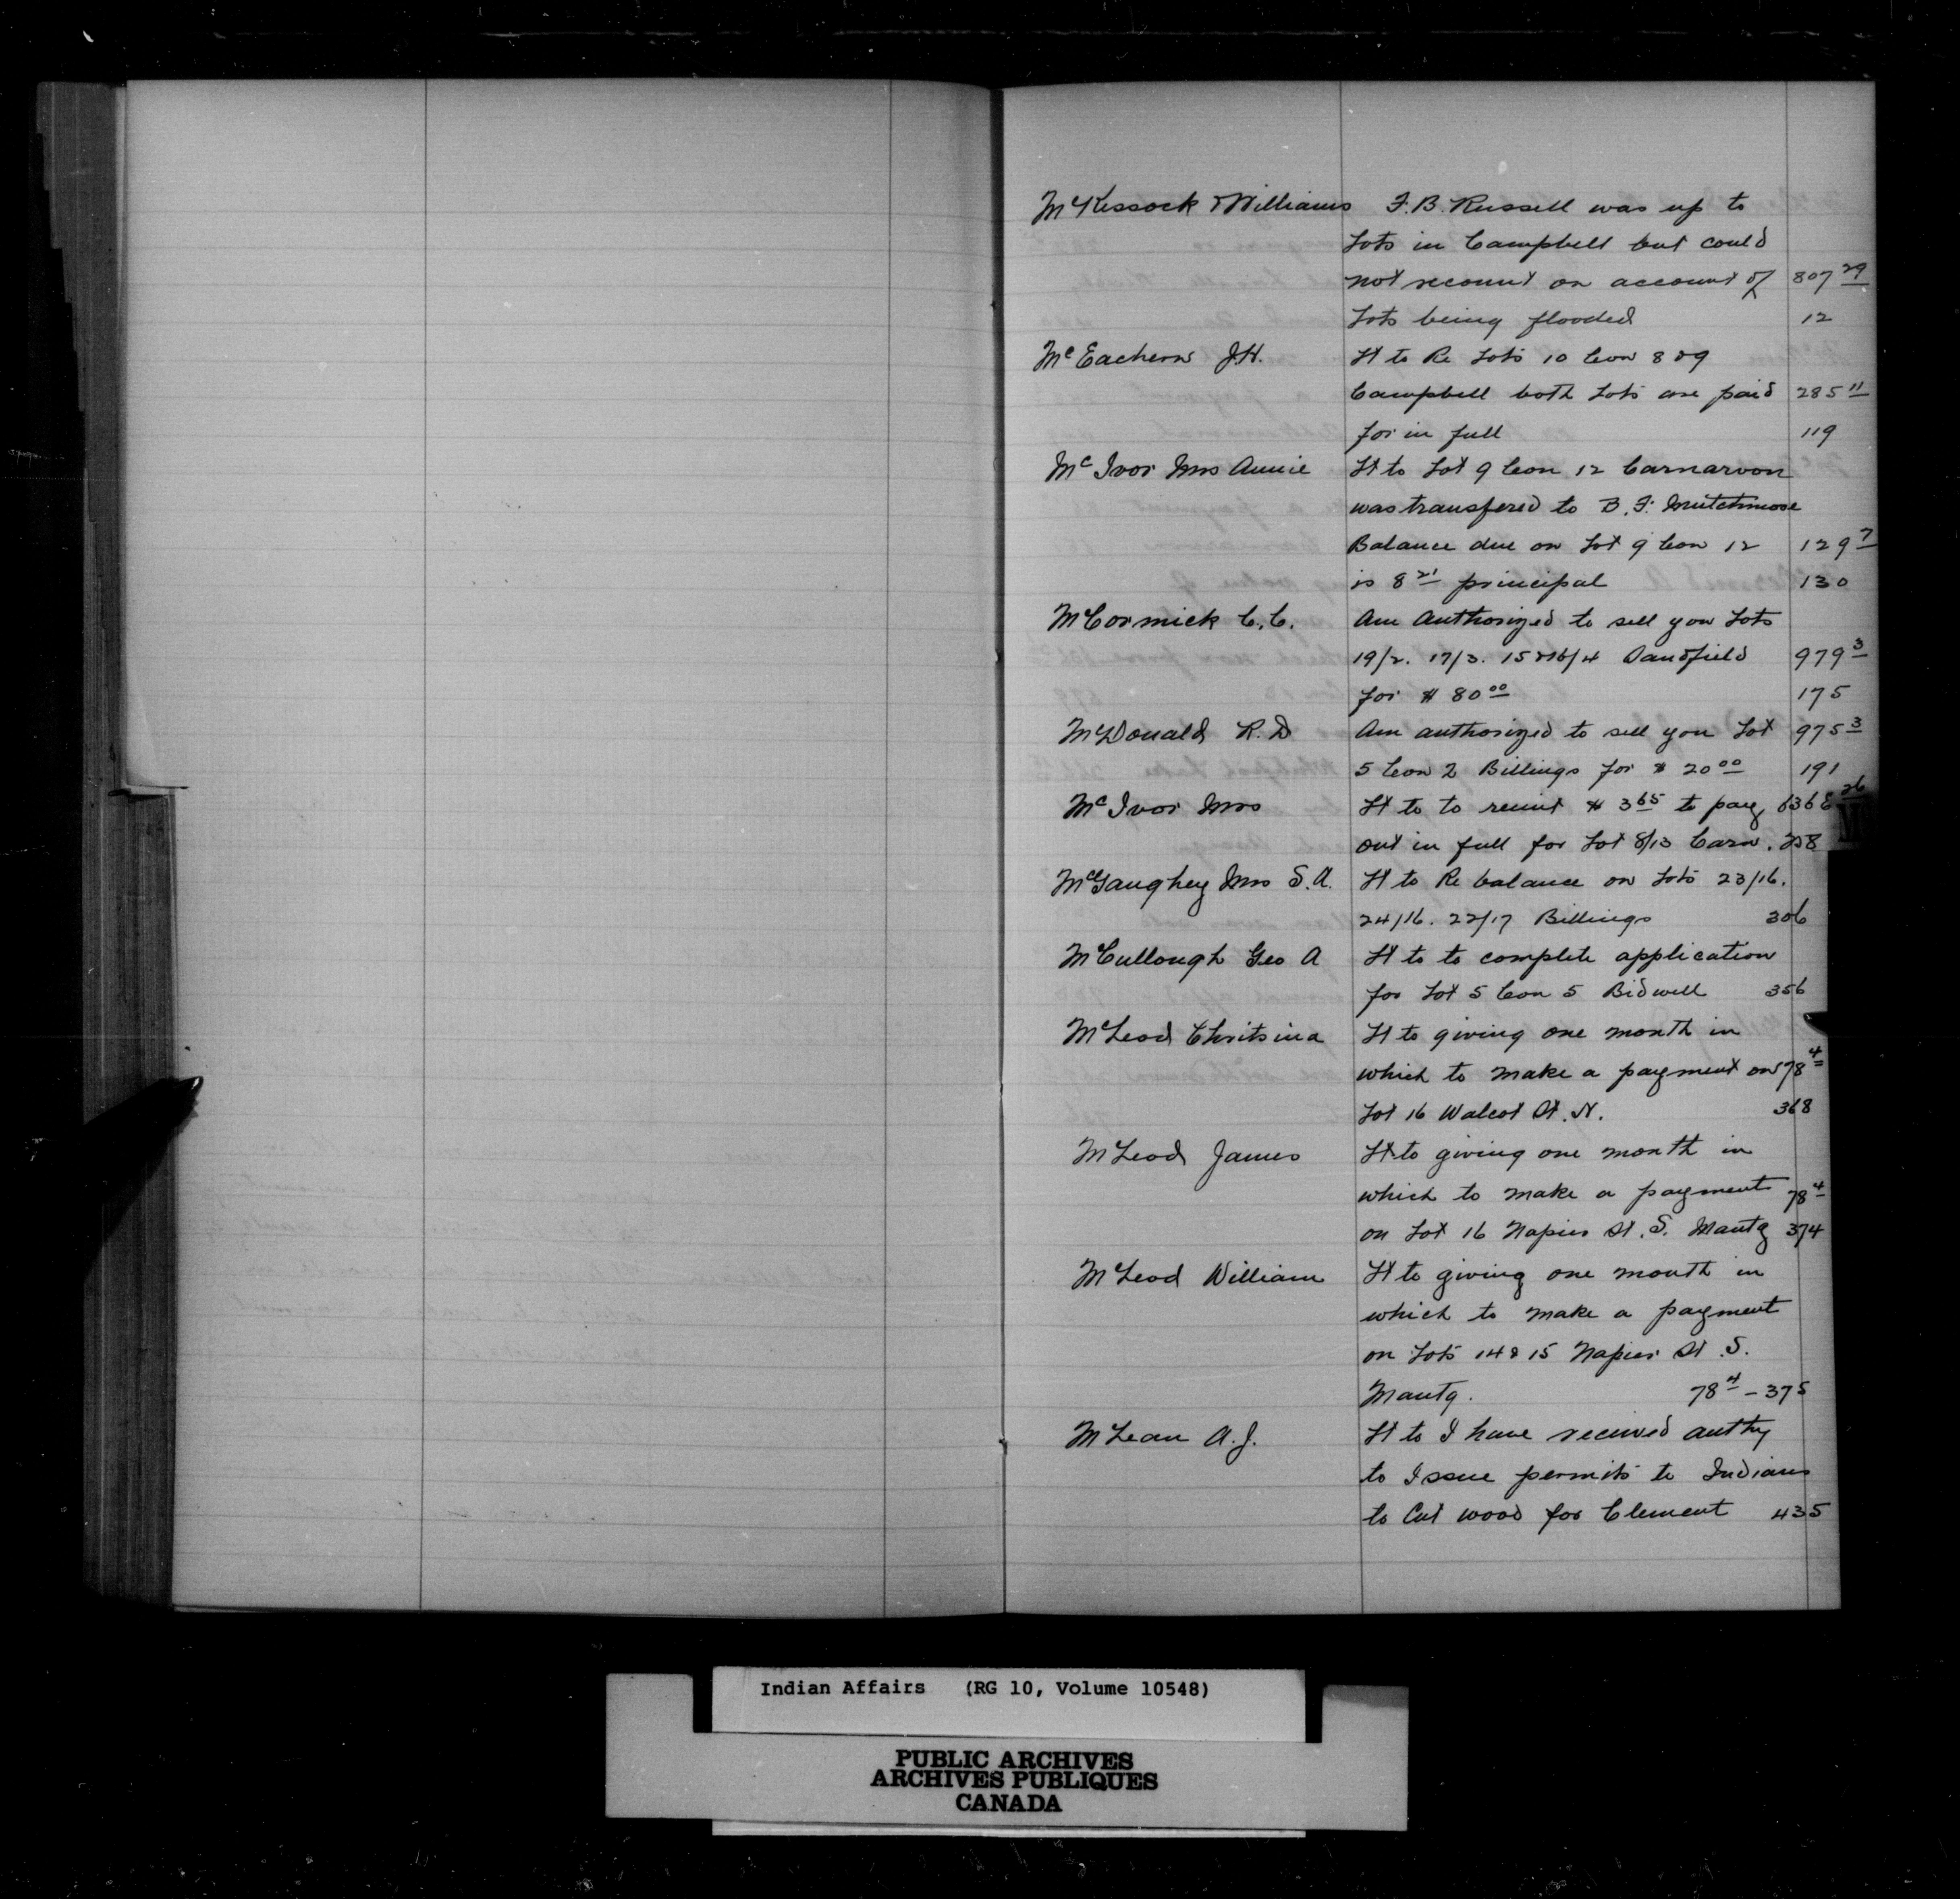 McKessock & Williams F.B. Russell was up to
Lots in Campbell but could
not recount on account of 807 29
Lots being flooded 12
Mc Eachern J.H. Lt to Re Lots 10 Con 8 & 9
Campbell both Lots are paid 285 11
for in full 119
Mc Ivor Mrs Annie Lt to Lot 9 Con 12 Carnarvon
was transfered to B.F. Mutchmore
Balance due on Lot 9 Con 12 129 7
is 8 21 principal 130
McCormick C.C. Am Authorized to sell you Lots
19/2. 17/3. 15 & 16/4 Sandfield 979 3
for $ 80 00 175
McDonald R.D Am authorized to sell you Lot 975 3
5 Con 2 Billings for $ 20 00 191
Mc Ivor Mrs Lt to to remit $ 3 65 to pay 26
out in full for Lot 8/13 Carn. 258
McGaughey Mrs S.A. Lt to Re balance on Lots 23/16.
24/16. 22/17 Billings 306
McCullough Geo A Lt to to complete application
for Lot 5 Con 5 Bidwell 356
McLeod Chritsina Lt to giving one month in
which to make a payment on 78 4
Lot 16 Walcot St. N. 368
McLeod James Lt to giving one month in
which to make a payment 78 4
on Lot 16 Napier St. S. Mantg 374
McLeod William Lt to giving one month in
which to make a payment
on Lots 14 & 15 Napier St. S.
Mantg. 78 4 - 375
McLean A.J. Lt to I have received authy
to Issue permits to Indians
to Cut wood for Clement 435
Indian Affairs (RG 10, Volume 10548)
PUBLIC ARCHIVES
ARCHIVES PUBLIQUES
CANADA